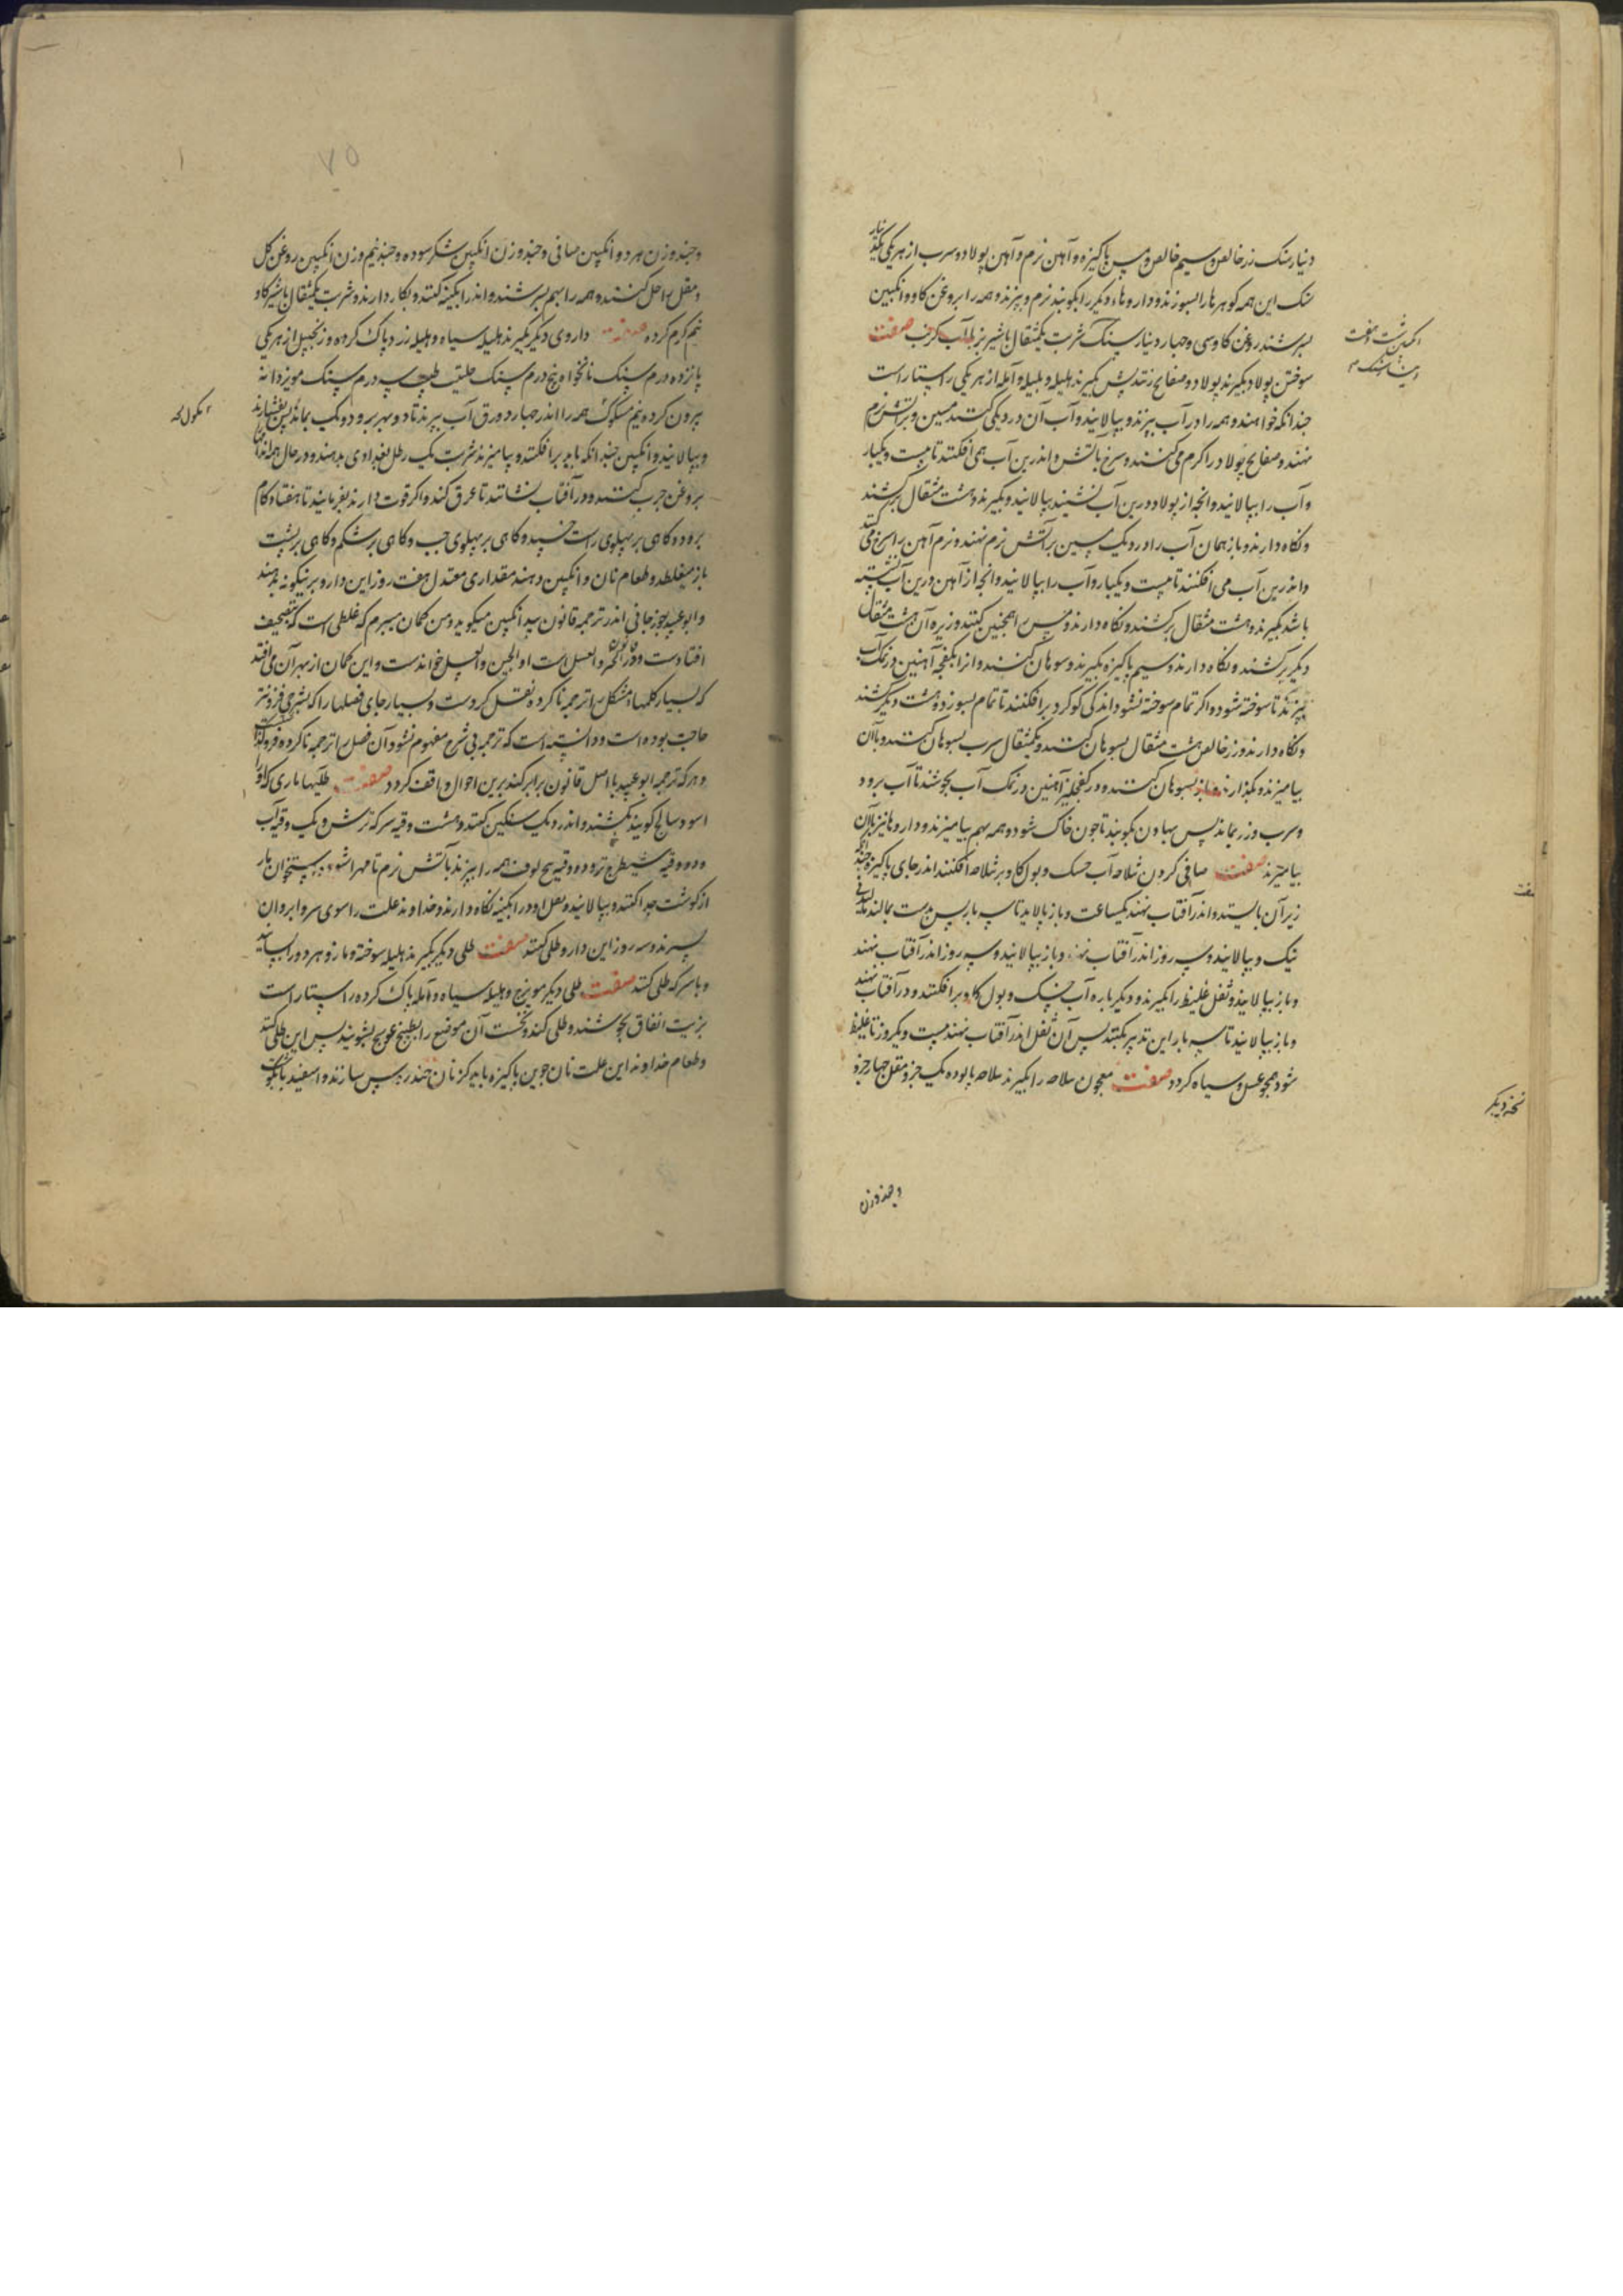 دینار سنک زر خالص و سیم خالص و مس پاکیزه و آهن نرم و آهن پولاد و سرب از هر یکی یکدینار
سنک این همه کوهرها را بسوزند و داروهاء دیکر را بکوبند نرم و بپزند و همه را بروغن کاو و انکبین
بسرشند روغن کاو سی و چهار دینار سنک شربت یکمثقال با شیر بز یا آب کرفس صفت
سوختن پولاد بکیرند پولاد و صفایح زنند پس بکیرند هلیله و بلیله و آمله از هر یکی راستاراست
چندانکه خواهند و همه را در آب بپزند و بپالایند و آب آن در دیکی کنند مسین و بر آتش نرم
نهند و صفایح پولاد را کرم می کنند و سرخ بآتش و اندرین آب همی افکنند تا بیست و یکبار
و آب را بپالایند و انچه از پولاد درین آب نشیند بپالایند و بکیرند و هشت مثقال برکشند
و نکاه دارند و باز همان آب را در دیک مسین بر آتش نرم نهند و نرم آهن را سرخ می کنند
و اندرین آب می افکنند تا بیست و یکبار و آب را بپالایند و انچه از آهن درین آب نشسته
باشد بکیرند و هشت مثقال برکشند و نکاه دارند و مس را همچنین کنند و زیره آن هشت مثقال
دیکر برکشند و نکاه دارند و سیم پاکیزه بکیرند و سوهان کنند و انرا بکفچه آهنین در نمک آب
بپزند تا سوخته شود و اکر تمام سوخته نشود اندکی کوکرد برافکنند تا تمام بسوزد و هشت دیکر برکشند
و نکاه دارند و زر خالص هشت مثقال بسوهان کنند و یکمثقال سرب بسوهان کنند و باان
بیامیزند و بکدازند و باز بسوهان کنند و در کفچلیز آهنین در نمک آب بجوشند تا آب برود
و سرب و زر بماند پس بهاون بکوبند تا چون خاک شود و همه بهم بیامیزند و داروها نیز باآن
بیامیزند صفت صافی کردن شلاحه آب حسک و بول کاو بر شلاحه افکنند اندر جای پاکیزه چندانکه
زبر آن بایستد و اندر آفتاب نهند یکساعت و باز بپالاید تا سه بار پس بدست بمالند مالیدنی
نیک و بپالایند و سه روز اندر آفتاب نهند و باز بپالایند و سه روز اندر آفتاب نهند
و باز بپالایند و ثفل غلیظ را بکیرند و دیکر باره آب حسک و بول کاو برافکنند و در آفتاب نهند
و باز بپالایند تا سه بار این تدبیر بکنند پس آن ثفل اندر آفتاب نهند بیست و یکروز تا غلیظ
شود همچو عسل و سیاه کردد صفت معجون سلاحه را بکیرند سلاحه پالوده یک جزو مقل چهار جزو
نسخه دیکر
و چند وزن
۷۵
و چند وزن هر دو انکبین صافی و چند وزن انکبین شکر سوده و چند نیم وزن انکبین روغن کل
و مقل را حل کنند و همه را بهم بسرشند و اندر ابکینه کنند و بکار دارند و شربت یکمثقال با شیر کاو
نیم کرم کرده صفت داروی دیکر بکیرند هلیله سیاه و هلیله زرد پاک کرده و زنجبیل از هر یکی
پانزده درم سنک نانخواه پنج درم سنک حلتیت طیب سه درم سنک مویز دانه
بیرون کرده نیم مسکوک همه را اندر چهار دورق آب بپزند تا دو بهر برود و یک بماند پس بفشارند
و بپالایند و انکبین چندانکه باید برافکنند و بیامیزند شربت یک رطل بغدادی بدهند و در حال همه اندام
بروغن چرب کنند و در آفتاب نشانند تا عرق کند و اکر قوت دارند بفرمایند تا هفتاد کام
برود و کاهی بر پهلوی راست خسپد و کاهی بر پهلوی چپ و کاهی بر شکم و کاهی بر پشت
باز میغلطد و طعام نان و انکبین دهند مقداری معتدل هفت روز این دارو برینکونه بدهند
و ابو عبید جوزجانی اندر ترجمه قانون سپید انکبین میکوید و من کمان میبرم که غلطی است که تصحیف
افتادست و والعسل است او الجبن والعسل خواندست و این کمان از بهر آن می افتد
که بسیار کلمهاء مشکل را ترجمه ناکرده نقل کردست و بسیار جای فصلها را که بشرحی فزونتر
حاجت بوده است و دانسته است که ترجمه بی شرح مفهوم نشود آن فصل را ترجمه ناکرده فروکذاشت
و هر که ترجمه ابو عبید با اصل قانون برابر کند برین احوال واقف کردد صفت طلیها ماری که او را
اسود سالخ کویند بکشند و اندر دیک سنکین کنند و هشت وقیه سرکه ترش و یک وقیه آب
و دو وقیه شیطرج تر و دو وقیه بیخ لوف همه را بپزند بآتش نرم تا مهرا شود پس استخوان مار
از کوشت جدا کنند و بپالایند و ثفل او در ابکینه نکاه دارند و خداوند علت را موی سر و ابروان
بسترند و سه روز این دارو طلی کنند صفت طلی دیکر بکیرند هلیله سوخته و مازو هر دو را بسایند
و با سرکه طلی کنند صفت طلی دیکر مویزج و هلیله سیاه و آمله پاک کرده راستاراست
بزیت انفاق بجوشند و طلی کنند و نخست آن موضع را بطبیخ عوسج بشویند پس این طلی کنند
و طعام خداوند این علت نان جوین پاکیزه باید کر نان خندروس سازند و اسفیدباج